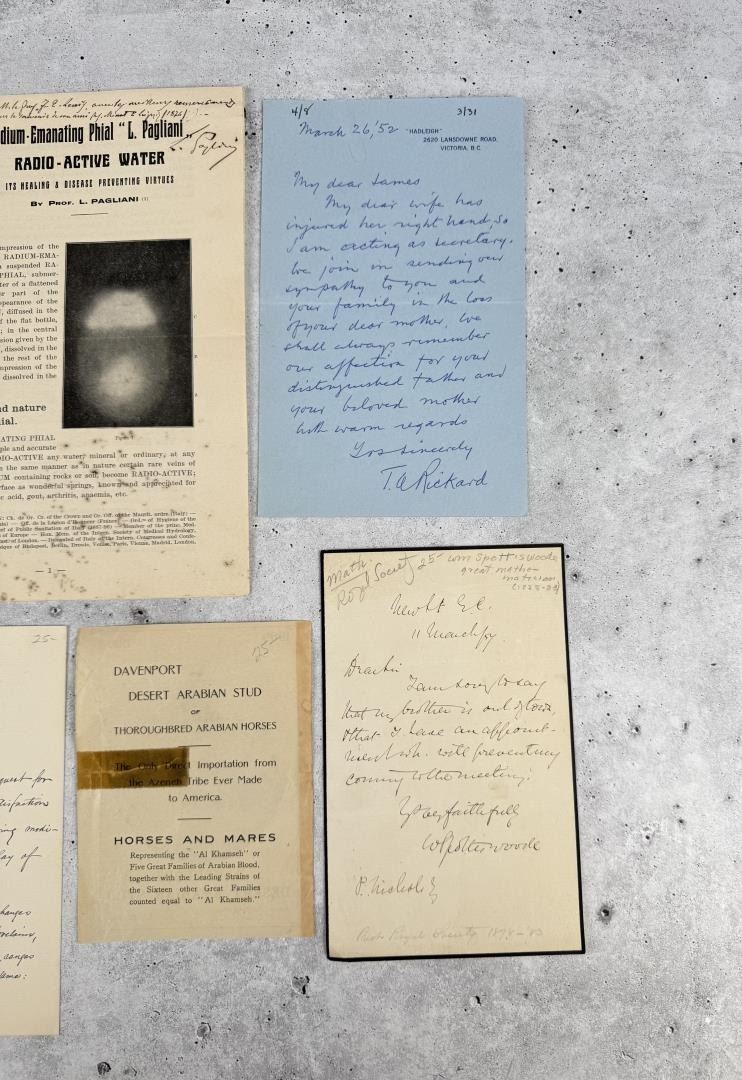 dium-Emanating Phial "L. Pagliani"
L. Pagliani
RADIO-ACTIVE WATER
ITS HEALING & DISEASE PREVENTING VIRTUES
BY PROF. L. PAGLIANI (1)
mpression of the
RADIUM-EMA-
suspended RA-
PHIAL, submer-
ter of a flattened
r part of the
ppearance of the
, diffused in the
f the flat bottle,
; in the central
sion given by the
, dissolved in the
the rest of the
mpression of the
dissolved in the
nd nature
ial.
ATING PHIAL
ple and accurate
IO-ACTIVE any water, mineral or ordinary, at any
n the same manner as in nature certain rare veins of
UM containing rocks or soil, become RADIO-ACTIVE;
rface as wonderful springs, known and appreciated for
c acid, gout, arthritis, anaemia, etc.
— 1 —
4/8 3/31
March 26, '52
"HADLEIGH"
2620 LANSDOWNE ROAD,
VICTORIA, B.C.
My dear James
My dear wife has
injured her right hand, so
I am acting as secretary.
We join in sending our
sympathy to you and
your family in the loss
of your dear mother. We
shall always remember
our affection for your
distinguished father and
your beloved mother
With warm regards
Yrs sincerely
T. A. Rickard
25-
quest for
tisfaction
ing medi-
lay of
hanges
25-
DAVENPORT
DESERT ARABIAN STUD
OF
THOROUGHBRED ARABIAN HORSES
The Only Direct Importation from
the Azeneh Tribe Ever Made
to America.
HORSES AND MARES
Representing the "Al Khamseh" or
Five Great Families of Arabian Blood,
together with the Leading Strains of
the Sixteen other Great Families
counted equal to "Al Khamseh."
Math
Royal Society 25- Wm Spottiswoode
great mathe-
matician
(1825-83)
New St E.C.
11 March
Dear Sir
I am sorry to say
that my brother is out of town,
& that I have an appoint-
ment wh. will prevent my
coming to the meeting.
Yrs very faithfully
W Spottiswoode
Pres Royal Society 1878-83